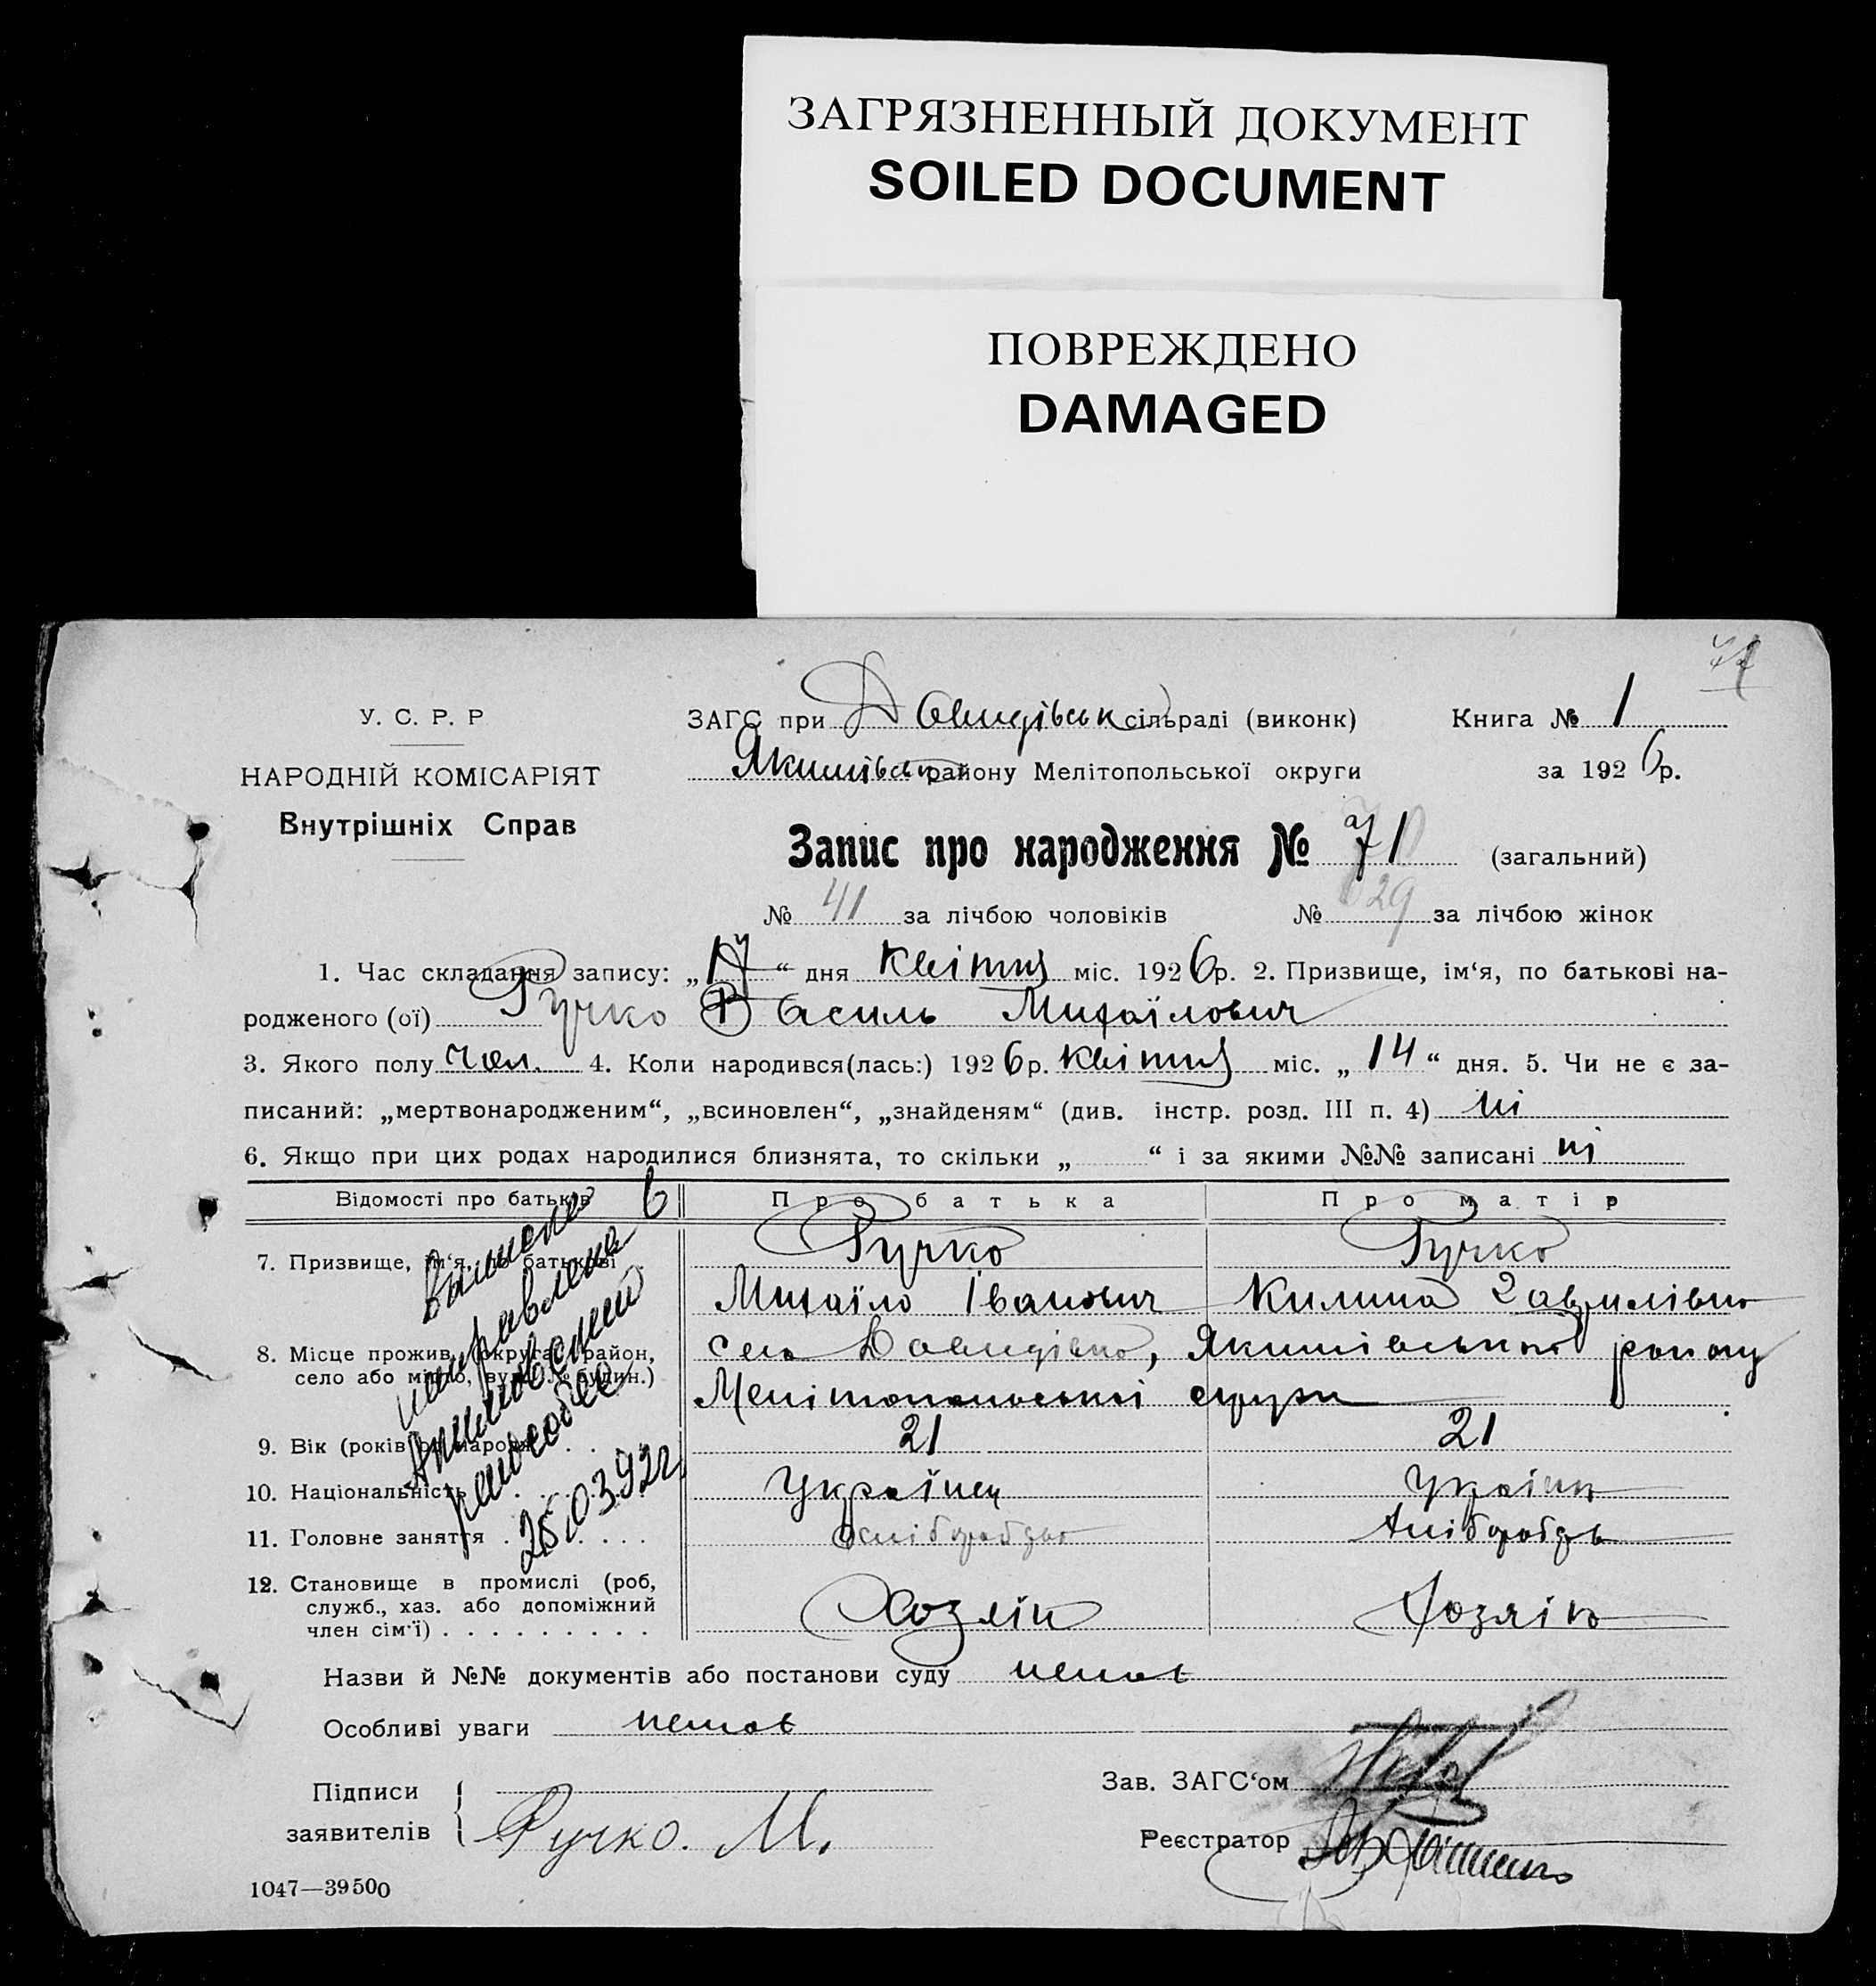 ЗАГРЯЗНЕННЫЙ ДОКУМЕНТ
SOILED DOCUMENT
ПОВРЕЖДЕНО
DAMAGED
У. С. Р. Р
НАРОДНІЙ КОМІСАРІЯТ
Внутрішніх Справ
ЗАГС при Давидівськ сільраді (виконк) Книга № 1
Якимівськ району Мелітопольської округи за 1926р.
Запис про народження № 71 (загальний)
№ 41 за лічбою чоловіків № 29 за лічбою жінок
1. Час складання запису: „17“ дня Квітня міс. 1926р. 2. Призвище, ім‘я, по батькові на-
родженого (ої) Ручко Василь Михаїлович
3. Якого полу чол. 4. Коли народився(лась:) 1926р. Квітня міс. „14“ дня. 5. Чи не є за-
писаний: „мертвонародженим“, „всиновлен“, „знайденям“ (див. інстр. розд. III п. 4) ні
6. Якщо при цих родах народилися близнята, то скільки „ “ і за якими №№ записані ні
Відомості про батьків Про батька Про матір
7. Призвище, ім‘я, по батькові Ручко Ручко
Михаїло Іванович Килина Гаврилівна
8. Місце прожив. (округа, район, село Давидівка, Якимівського району
село або місто, вул. № будин.) Мелітопольської округи
9. Вік (років від народж. 21 21
10. Національність Українец Українка
11. Головне заняття Хліборобство Хліборобств
12. Становище в промислі (роб,
служб., хаз. або допоміжний Хозяїн Хозяїка
член сім‘ї)
выписка в
направлена
Акимовский
25.03.92г.
Назви й №№ документів або постанови суду немає
Особливі уваги немає
Підписи
заявителів Ручко. М.
Зав. ЗАГС‘ом
Реєстратор
1047—39500